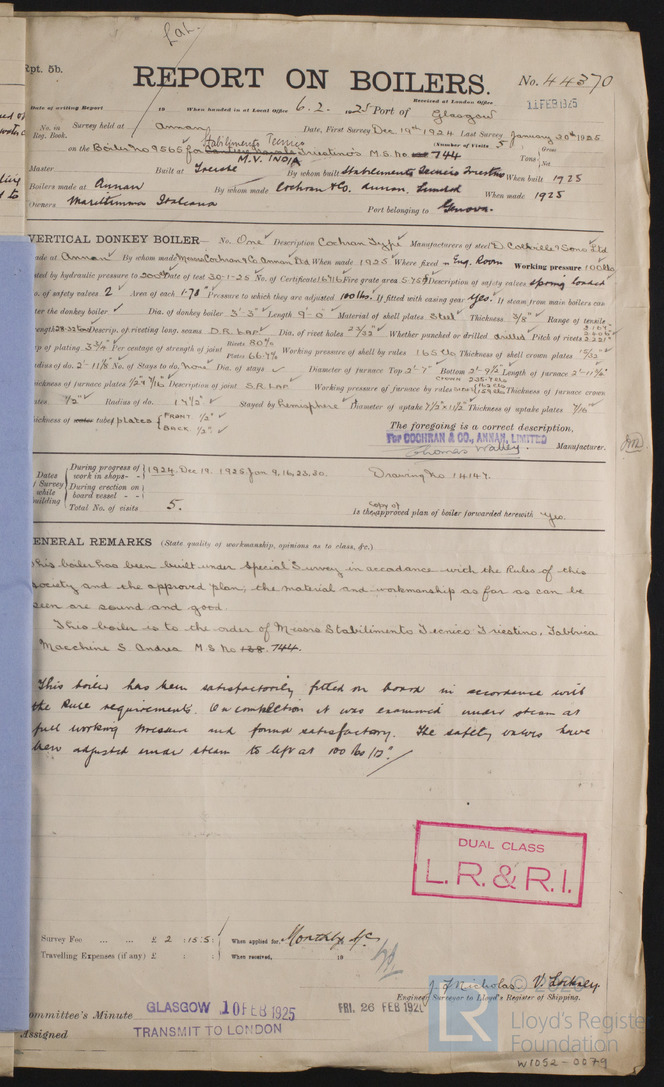 Lat.
Rpt. 5b.
REPORT ON BOILERS.
No. 44370
Received at London Office
11 FEB 1925
Date of writing Report 19 When handed in at Local Office 6.2. 1925 Port of Glasgow
No. in Reg. Book. Survey held at Annan Date, First Survey Dec 19th 1924 Last Survey January 30th 1925
(Number of Visits 5) Gross
Stabilimento Tecnico
on the Boiler No 9565 for Triestino's M.S. No 744 Tons Net
M.V. INDIA
Master Built at Trieste By whom built Stabilimento Tecnico Triestino When built 1925
Boilers made at Annan By whom made Cochran & Co. Annan, Limited When made 1925
Owners Marittima Italiana Port belonging to Genova.
VERTICAL DONKEY BOILER— No. One Description Cochran Type Manufacturers of steel D. Colville & Sons Ltd
made at Annan By whom made Messrs Cochran & Co. Annan Ltd When made 1925 Where fixed in Eng. Room Working pressure 100 lbs
tested by hydraulic pressure to 200 Date of test 30-1-25 No. of Certificate 16716 Fire grate area Description of safety valves spring loaded
No. of safety valves 2 Area of each Pressure to which they are adjusted 100 lbs. If fitted with easing gear yes. If steam from main boilers can
enter the donkey boiler Dia. of donkey boiler 3'-3" Length 9'-0" Material of shell plates Steel Thickness 3/8" Range of tensile
strength Descrip. of riveting long. seams D.R. Lap Dia. of rivet holes 23/32" Whether punched or drilled drilled Pitch of rivets 2.221"
Lap of plating 3 3/4" Per centage of strength of joint Rivets 80% Plates 66.7% Working pressure of shell by rules 165 lbs Thickness of shell crown plates 15/32"
Radius of do. 2'-11 1/8" No. of Stays to do. none Dia. of stays Diameter of furnace Top 2'-7" Bottom 2'-9 1/2" Length of furnace 2'-11 3/16"
Thickness of furnace plates Description of joint S.R. Lap Working pressure of furnace by rules Thickness of furnace crown
plates 1/2" Radius of do. 17 1/2" Stayed by hemisphere Diameter of uptake 7 1/2" x 11 1/2" Thickness of uptake plates 7/16"
Thickness of water tube plates FRONT 1/2" BACK 1/2"
The foregoing is a correct description,
For COCHRAN & CO., ANNAN, LIMITED
Thomas Walley. Manufacturer.
Dates of Survey while building
During progress of work in shops- - 1924. Dec 19. 1925 Jan 9, 16, 23. 30. Drawing No. 14147.
During erection on board vessel - -
Total No. of visits 5. Is the copy of approved plan of boiler forwarded herewith Yes.
GENERAL REMARKS (State quality of workmanship, opinions as to class, &c.)
This boiler has been built under Special Survey in accordance with the Rules of this
Society and the approved plan; the material and workmanship as far as can be
seen are sound and good.
This boiler is to the order of Messrs Stabilimento Tecnico Triestino, Fabbrica
Macchine S. Andrea M.S. No 138. 744.
This boiler has been satisfactorily fitted on board in accordance with
the Rule requirements. On completion it was examined under steam at
full working pressure and found satisfactory. The safety valves have
been adjusted under steam to lift at 100 lbs/□".
DUAL CLASS
L.R. & R.I.
Survey Fee ... ... £ 2 : 15 : 5 When applied for, Monthly A/c
Travelling Expenses (if any) £ : : When received, 19
J. F. Nicholas. V. Lockney
Engineer Surveyor to Lloyd's Register of Shipping.
Committee's Minute GLASGOW 10 FEB 1925 FRI. 26 FEB 1926
Assigned TRANSMIT TO LONDON
© 2020
LR
Lloyd's Register
Foundation
W1052-0079